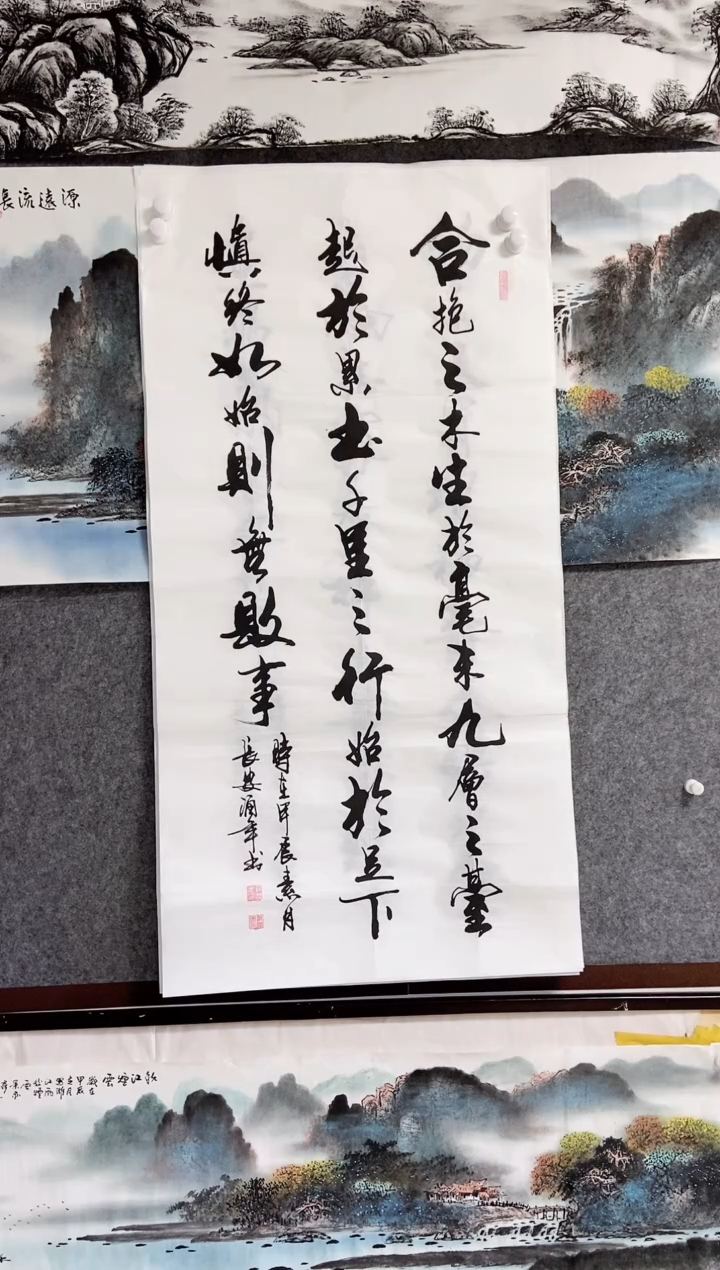 合抱之木生於毫末九層之臺
起於累土千里之行始於足下
慎終如始則無敗事
時在甲辰素月
長安酒年書
源遠流長
漓江煙雲